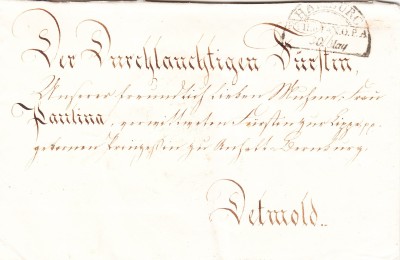 HAMBURG
Der Durchlauchtigen Fürstin,
Unserer freundlich lieben Muhme Frau
Paulina, verwittweten Fürstin zur Lippe pp.
gebornen Prinzessin zu Anhalt-Bernburg.
Detmold.